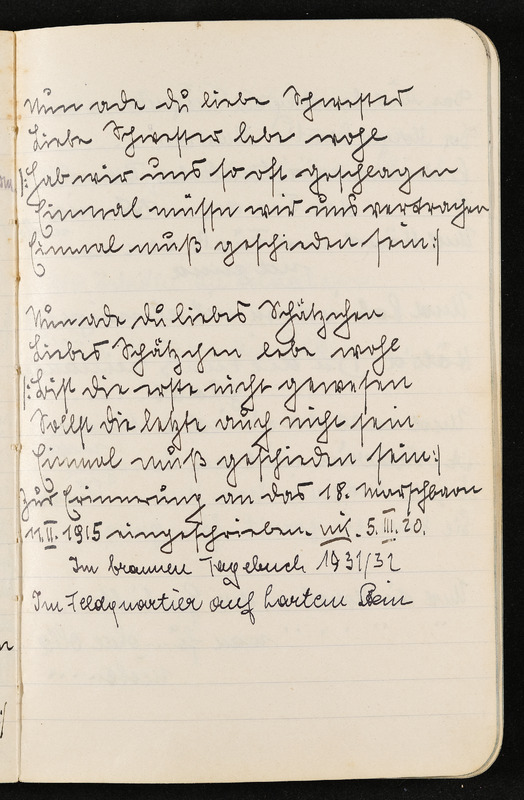 Nun ade du liebe Schwester
Liebe Schwester lebe wohl
/: Hab wir uns so oft geschlagen
Einmal müssn wir uns vertragen
Einmal muß geschieden sein :/
Nun ade du liebes Schätzchen
Liebes Schätzchen lebe wohl
/: Bist die erste nicht gewesen
Sollst die letzte auch nicht sein
Einmal muß geschieden sein :/
Zur Erinnerung an das 18. Marschbaon
11. II. 1915 eingeschrieben. 5. III. 20.
Im braunen Tagebuch 1931/32
Im Feldquartier auf hartem